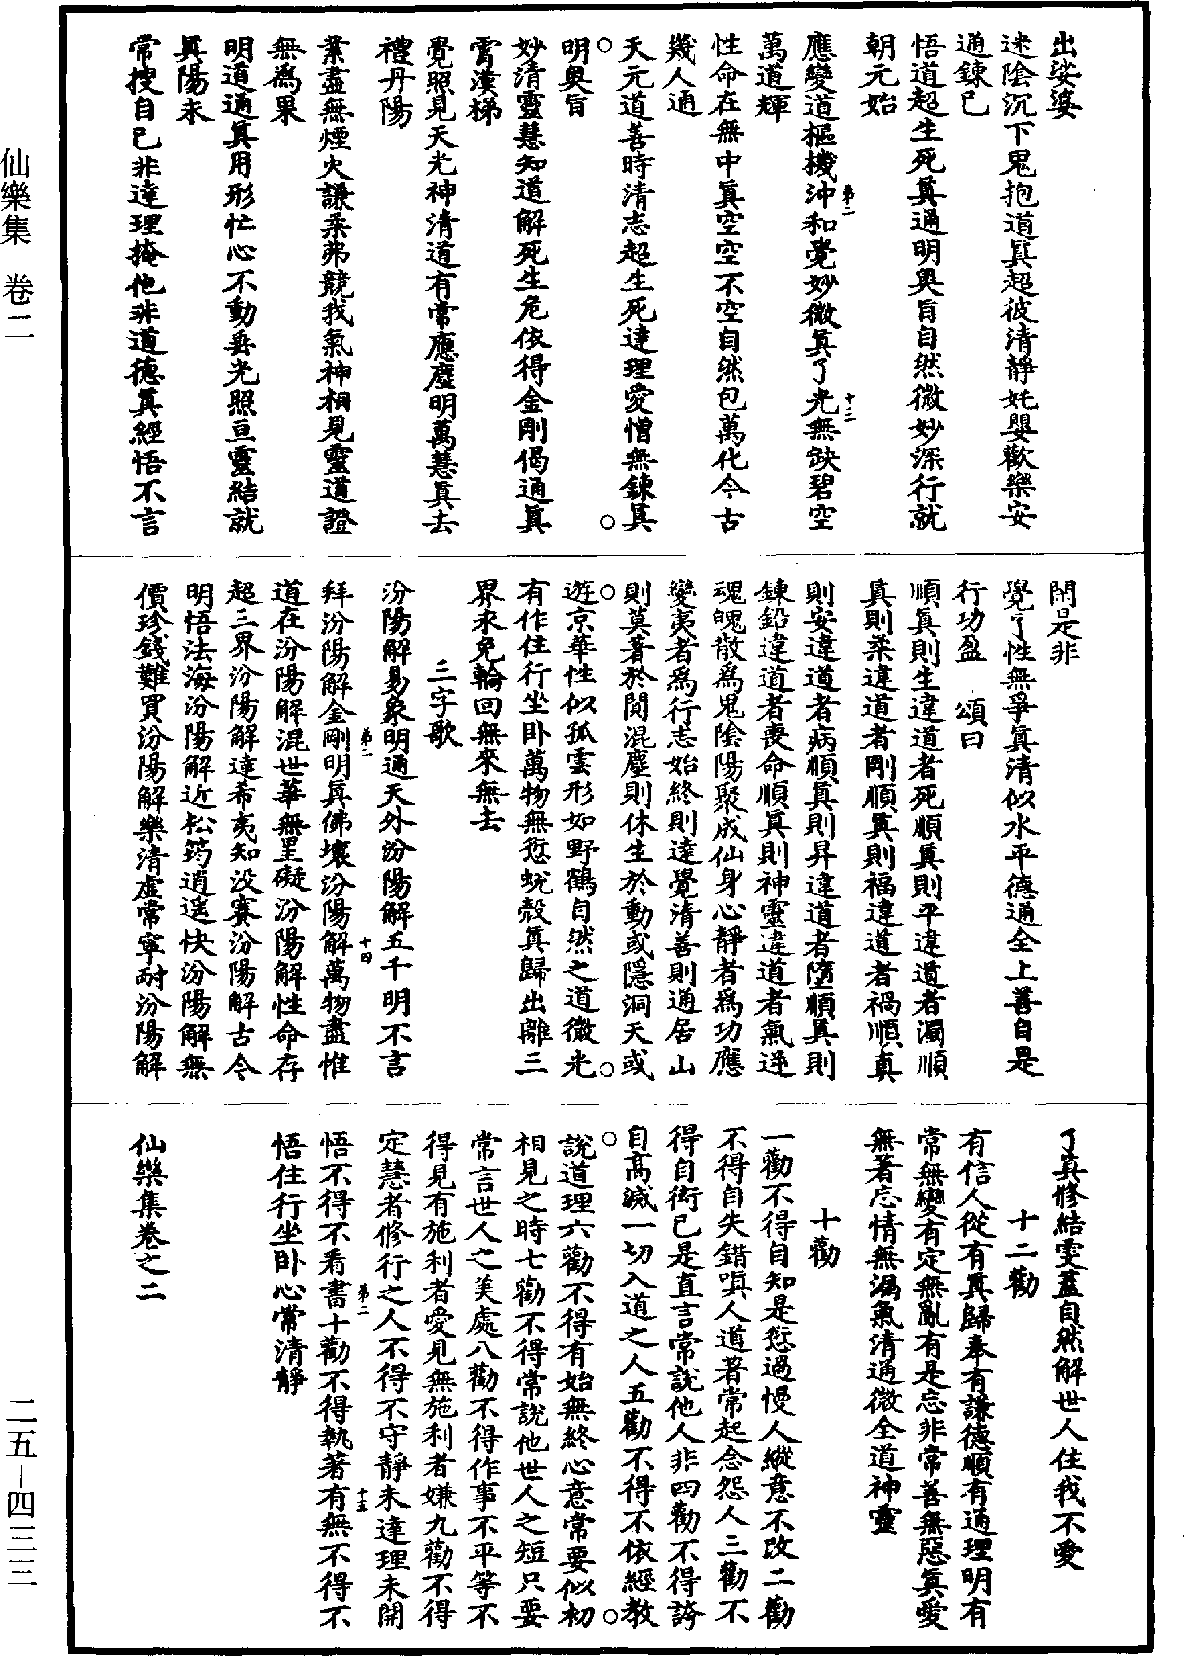 出娑婆
迷陰沉下鬼抱道眞超彼清靜奼嬰歡樂安
通鍊已
悟道超生死眞通明奥旨自然微妙深行就
朝元始
應變道樞機沖和覺妙微眞了光無缺碧空
萬道輝
性命在無中眞空空不空自然包萬化今古
幾人通
天元道善時清志超生死達理愛憎無鍊其
明奥旨
妙清靈慧知道解死生危依得金剛偈通眞
霄漢梯
覺照見天光神清道有常應塵明萬慧眞去
禮丹陽
業盡無煙火謙柔弗競我氣神相見靈道證
無爲果
明道通眞用形忙心不動垂光照亘靈結就
眞陽未
常搜自己非達理掩他非道德眞經悟不言
閑是非
覺了性無爭眞清似水平德通全上善自是
行功盈 頌曰
順眞則生違道者死順眞則平違道者濁順
眞則柔違道者剛順眞則福違道者禍順眞
則安違道者病順眞則昇違道者墮順眞則
鍊鉛違道者喪命順眞則神靈違道者氣逆
魂魄散爲鬼陰陽聚成仙身心靜者爲功應
變夷者爲行志始終則達覺清善則通居山
則莫著於閑混塵則休生於動或隱洞天或
遊京華性似孤雲形如野鶴自然之道微光
有作住行坐卧萬物無愆蛻殼眞歸出離三
界永免輪回無來無去
三字歌
汾陽解易象明通天外汾陽解五千明不言
拜汾陽解金剛明眞佛壞汾陽解萬物盡惟
道在汾陽解混世華無罣礙汾陽解性命存
超三界汾陽解達希夷知没賽汾陽解古今
明悟法海汾陽解近松筠逍遥快汾陽解無
價珍錢難買汾陽解樂清虛常寧耐汾陽解
了眞修結雯蓋自然解世人住我不愛
十二勸
有信人從有眞歸奉有謙德順有通理明有
常無變有定無亂有是忘非常善無惡眞愛
無著忘情無漏氣清通微全道神靈
十勸
一勸不得自知是愆過慢人縱意不改二勸
不得自失錯嗔人道著常起念怨人三勸不
得自衒已是直言常說他人非四勸不得誇
自高滅一切入道之人五勸不得不依經教
說道理六勸不得有始無終心意常要似初
相見之時七勸不得常說他世人之短只要
常言世人之美處八勸不得作事不平等不
得見有施利者愛見無施利者嫌九勸不得
定慧者修行之人不得不守靜未達理未開
悟不得不看書十勸不得執著有無不得不
悟住行坐卧心常清靜
仙樂集卷之二
仙樂集 卷二
二五–四三三
第二
十三
第二
十四
第二
十五